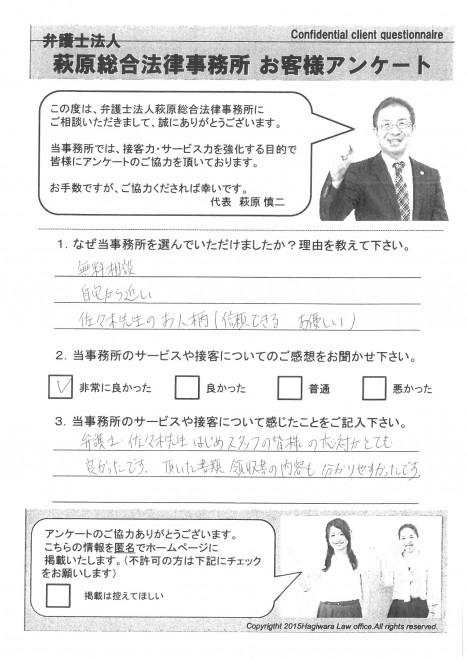 Confidential client questionnaire
弁護士法人
萩原総合法律事務所 お客様アンケート
この度は、弁護士法人萩原総合法律事務所に
ご相談いただきまして、誠にありがとうございます。
当事務所では、接客力・サービス力を強化する目的で
皆様にアンケートのご協力を頂いております。
お手数ですが、ご協力くだされば幸いです。
代表 萩原 慎二
1. なぜ当事務所を選んでいただけましたか？理由を教えて下さい。
無料相談
自宅から近い
佐々木先生のお人柄(信頼できる お優しい)
2. 当事務所のサービスや接客についてのご感想をお聞かせ下さい。
非常に良かった 良かった 普通 悪かった
3. 当事務所のサービスや接客について感じたことをご記入下さい。
弁護士 佐々木先生はじめスタッフの皆様の応対がとても
良かったです。頂いた書類 領収書の内容も分かりやすかったです。
アンケートのご協力ありがとうございます。
こちらの情報を匿名でホームページに
掲載いたします。(不許可の方は下記にチェック
をお願いします)
掲載は控えてほしい
Copyright 2015Hagiwara Law office.All rights reserved.